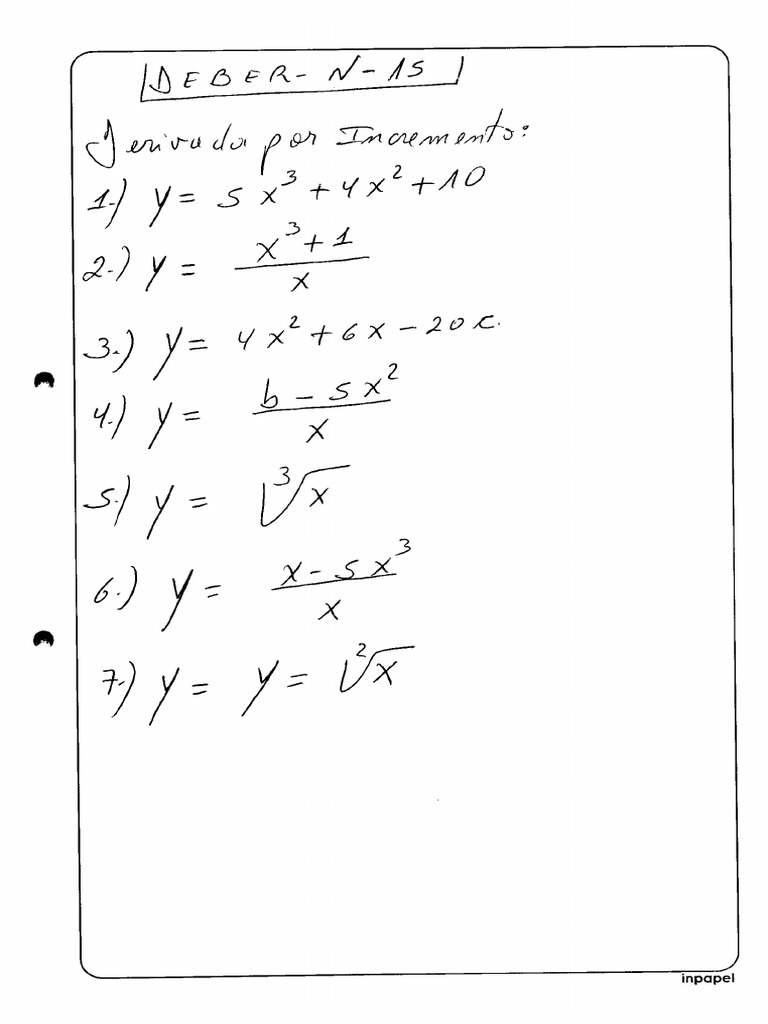 DEBER-N-15
Derivada por Incremento:
1.) y = 5x³ + 4x² + 10
2.) y = x³ + 1 / x
3.) y = 4x² + 6x - 20x.
4.) y = b - 5x² / x
5.) y = ³√x
6.) y = x - 5x³ / x
7.) y = y = ²√x
inpapel